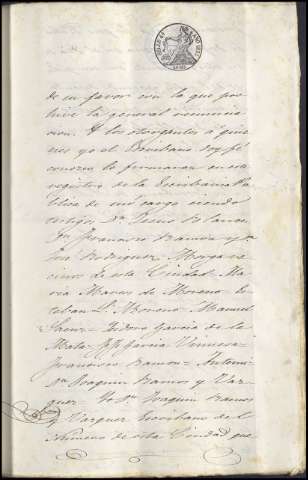 de su favor con la que pro
hive la general renuncia
cion. Y los otorgantes à quie
nes yo el Escribano doy fé
conozco lo firmaron en este
registro de la Escribania Pu
blica de mi cargo siendo
testigos Dn
Dn Francisco Ramos y Dn
José Rodriguez Monja ve
cinos de esta Ciudad = Ma
ria Marcos de Moreno = Es
teban L. Moreno = Manuel
Saenz = Isidoro Garcia de la
Mata = Garcia
Francisco Ramos = Antemi
Dn Joaquin Ramos y Vaz
quez = Yo Dn Joaquin Ramos
y Vazquez Escribano del
Numero de esta Ciudad que